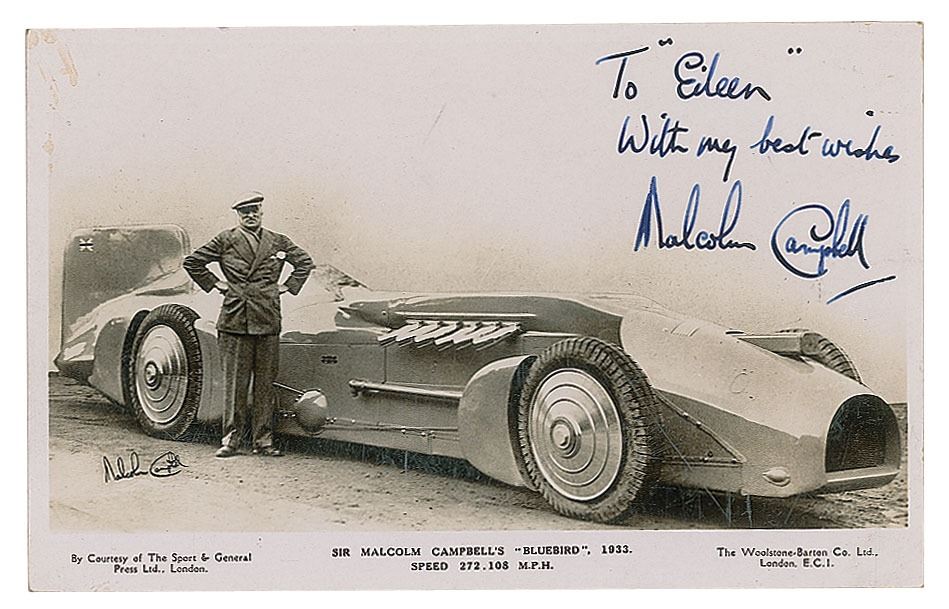 To "Eileen"
With my best wishes
Malcolm Campbell
Malcolm Campbell
By Courtesy of The Sport & General
Press Ltd., London.
SIR MALCOLM CAMPBELL'S "BLUEBIRD", 1933.
SPEED 272.108 M.P.H.
The Woolstone-Barton Co. Ltd.,
London, E.C.1.